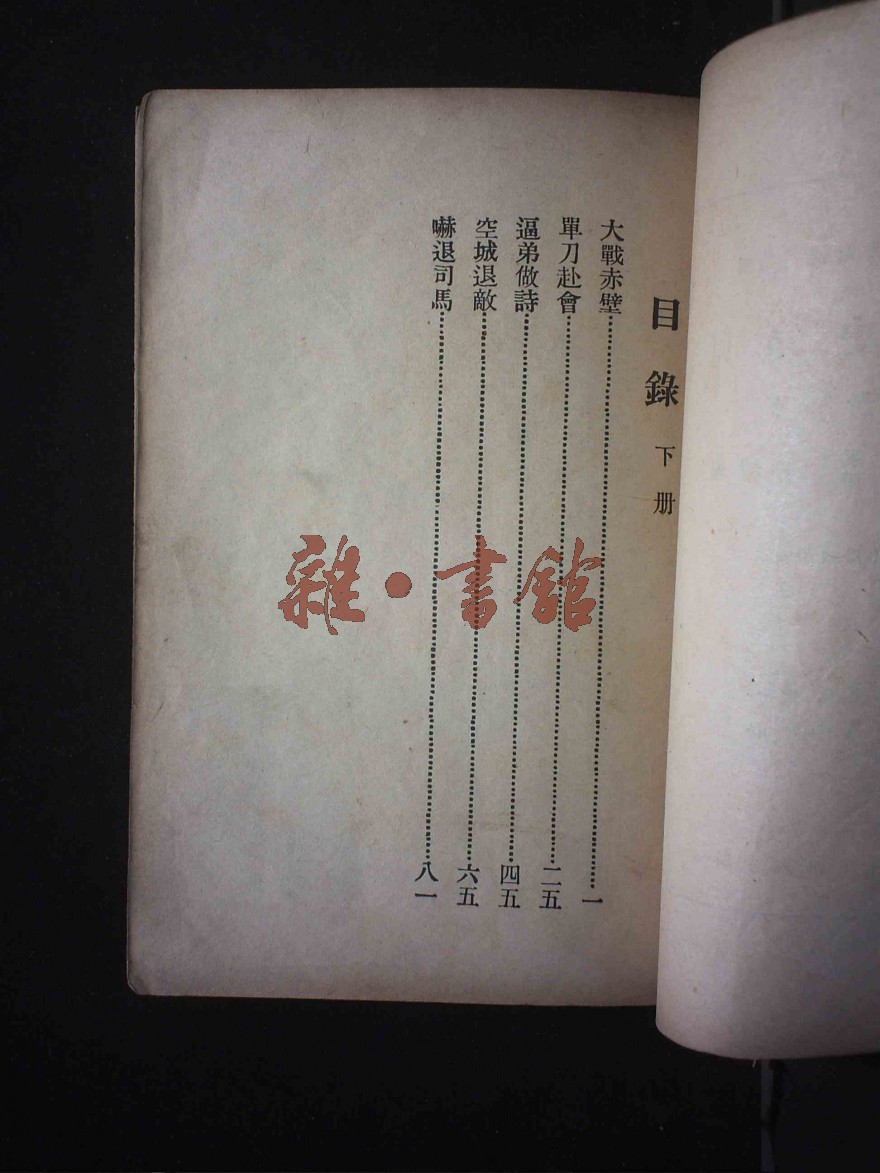 目錄 下册
大戰赤壁……一
單刀赴會……二五
逼弟做詩……四五
空城退敵……六五
嚇退司馬……八一
雜·書館